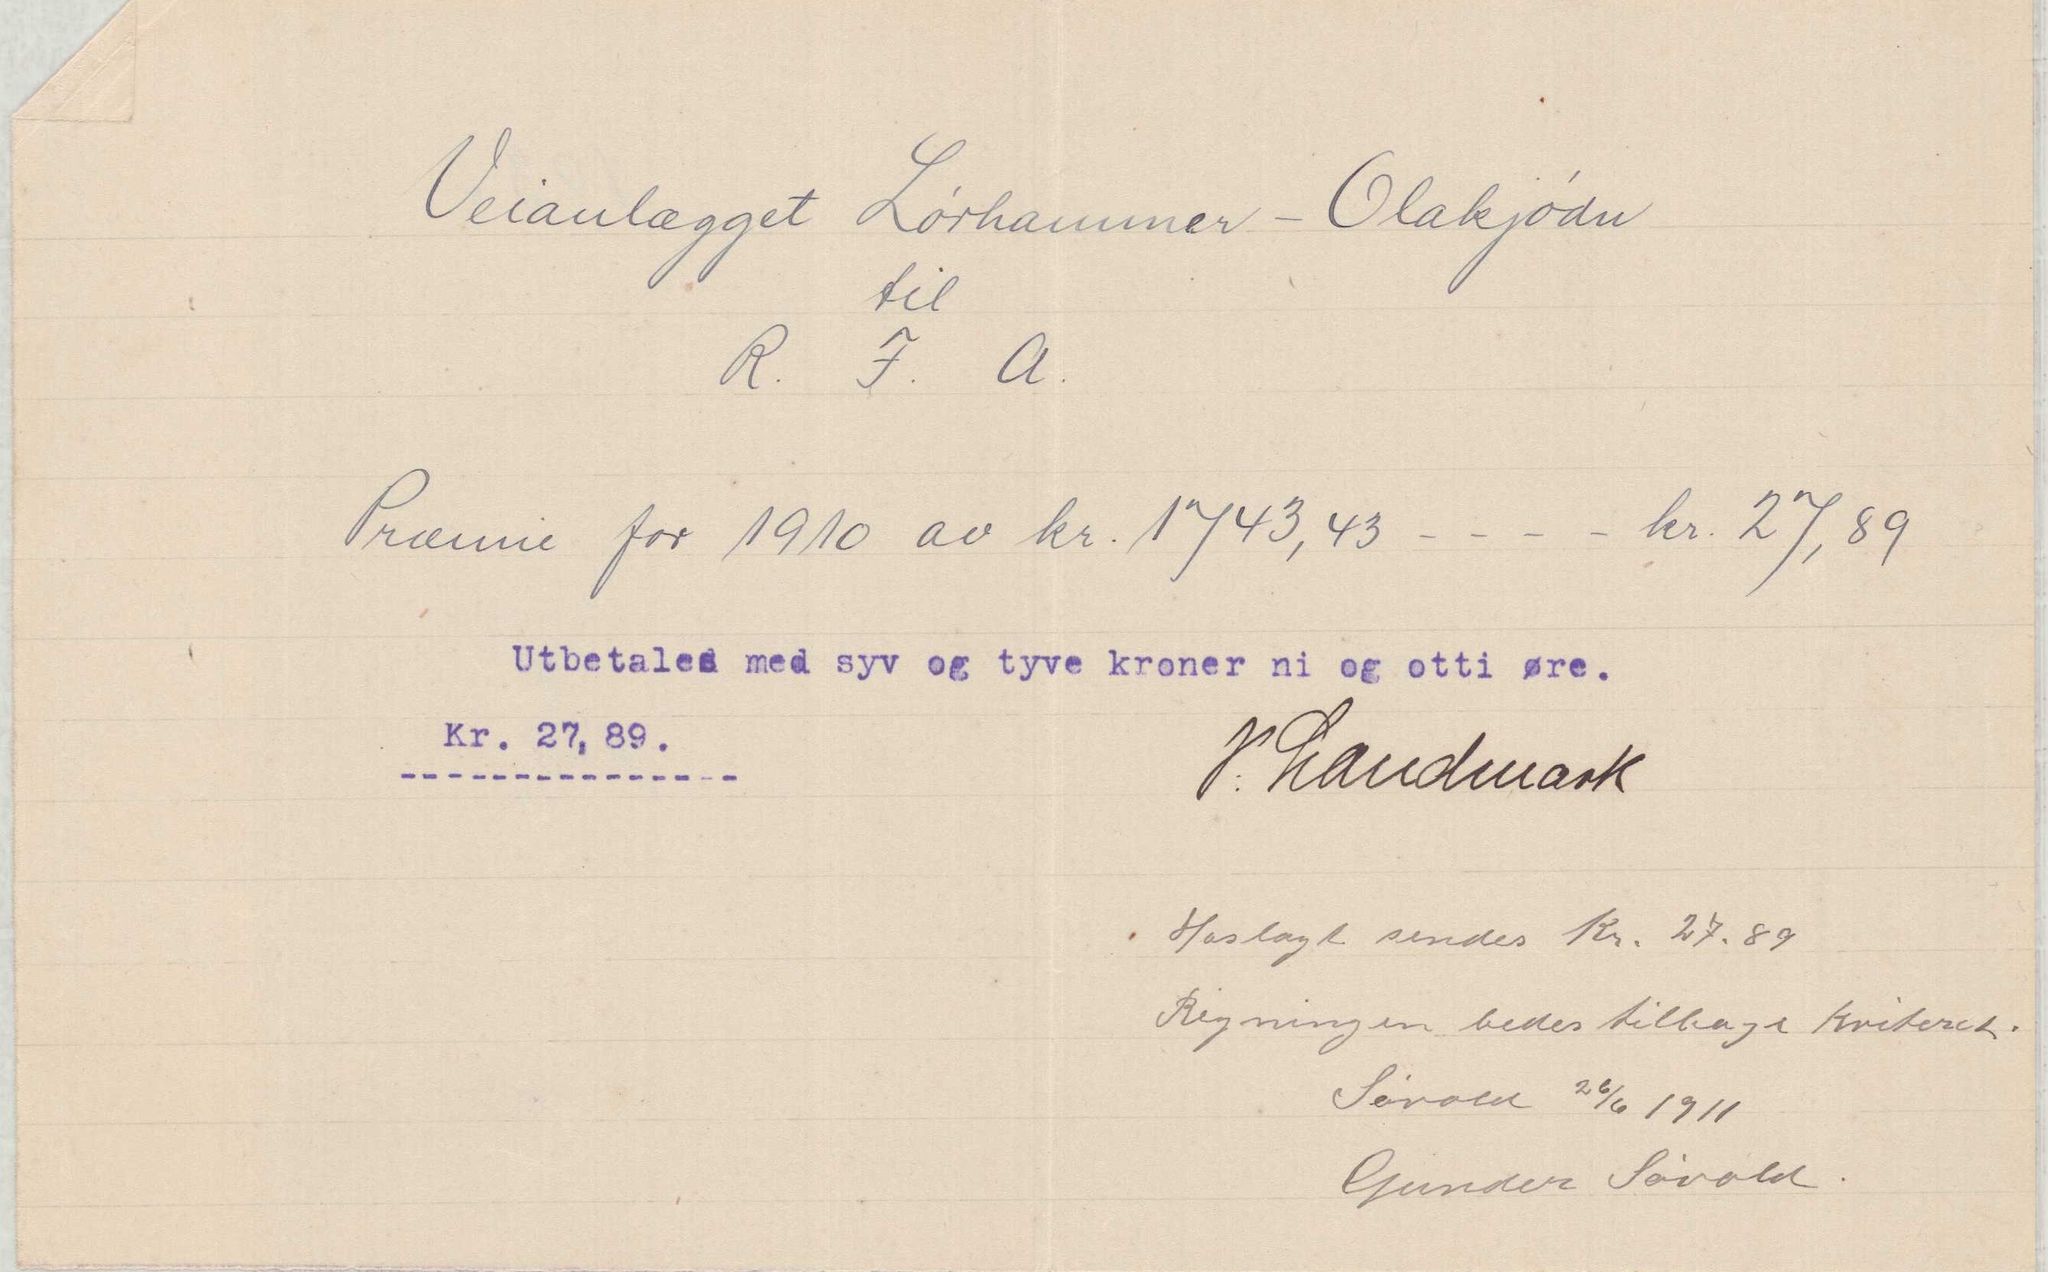 Veianlægget Lórhammer - Olakjódn
til
R. F. A.
Præmie for 1910 av kr. 1743,43 - - - - kr. 27,89
Utbetales med syv og tyve kroner ni og otti øre.
Kr. 27,89.
----------------
N. Landmark
Hoslagt sendes Kr. 27.89
Regningen bedes tilbage kviteret.
Sóvold 26/6 1911
Gunder Sóvold.